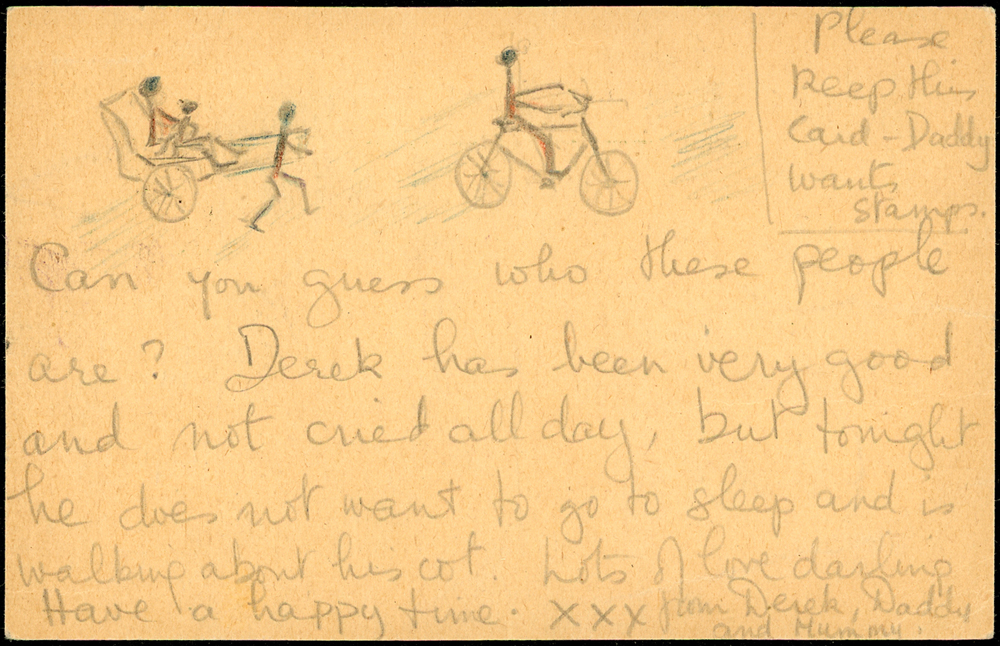 Please
keep this
Card - Daddy
wants
stamps.
Can you guess who these people
are? Derek has been very good
and not cried all day, but tonight
he does not want to go to sleep and is
walking about his cot. Lots of love darling
Have a happy time. XXX from Derek, Daddy
and Mummy.